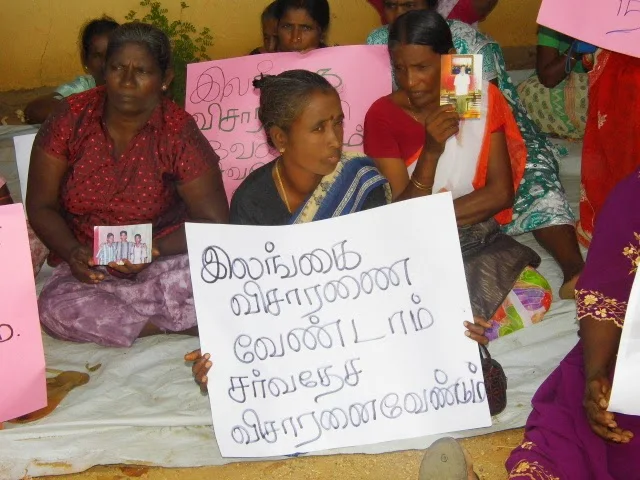 இலங்கை
விசாரணை
வேண்டாம்
சர்வதேச
விசாரனைவேண்டும்
இலங்கை
விசார